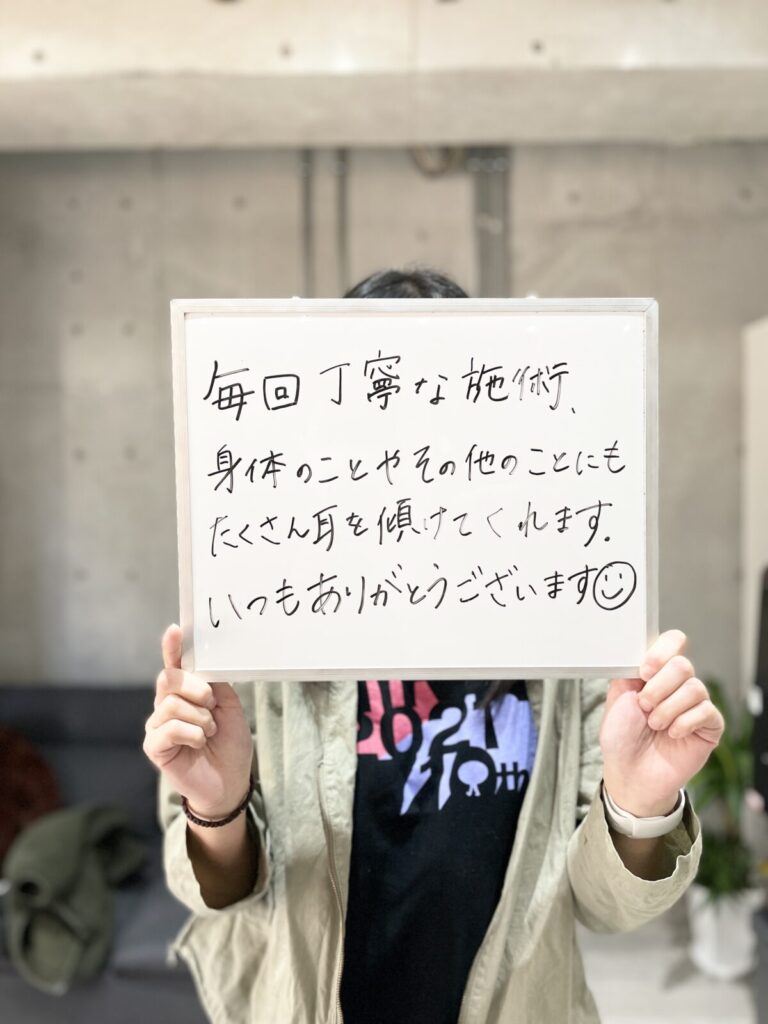 毎回丁寧な施術、
身体のことやその他のことにも
たくさん耳を傾けてくれます.
いつもありがとうございます☺
2021
10th